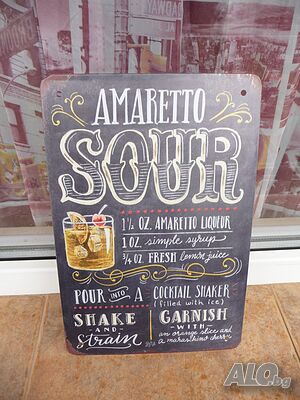 AMARETTO
SOUR
1½ OZ. AMARETTO LIQUEUR
1 OZ. simple syrup
¾ OZ. FRESH lemon juice
POUR INTO A COCKTAIL SHAKER
(filled with ice)
SHAKE
-AND-
Strain
GARNISH
-WITH-
an orange slice and
a maraschino cherry
ALO.bg